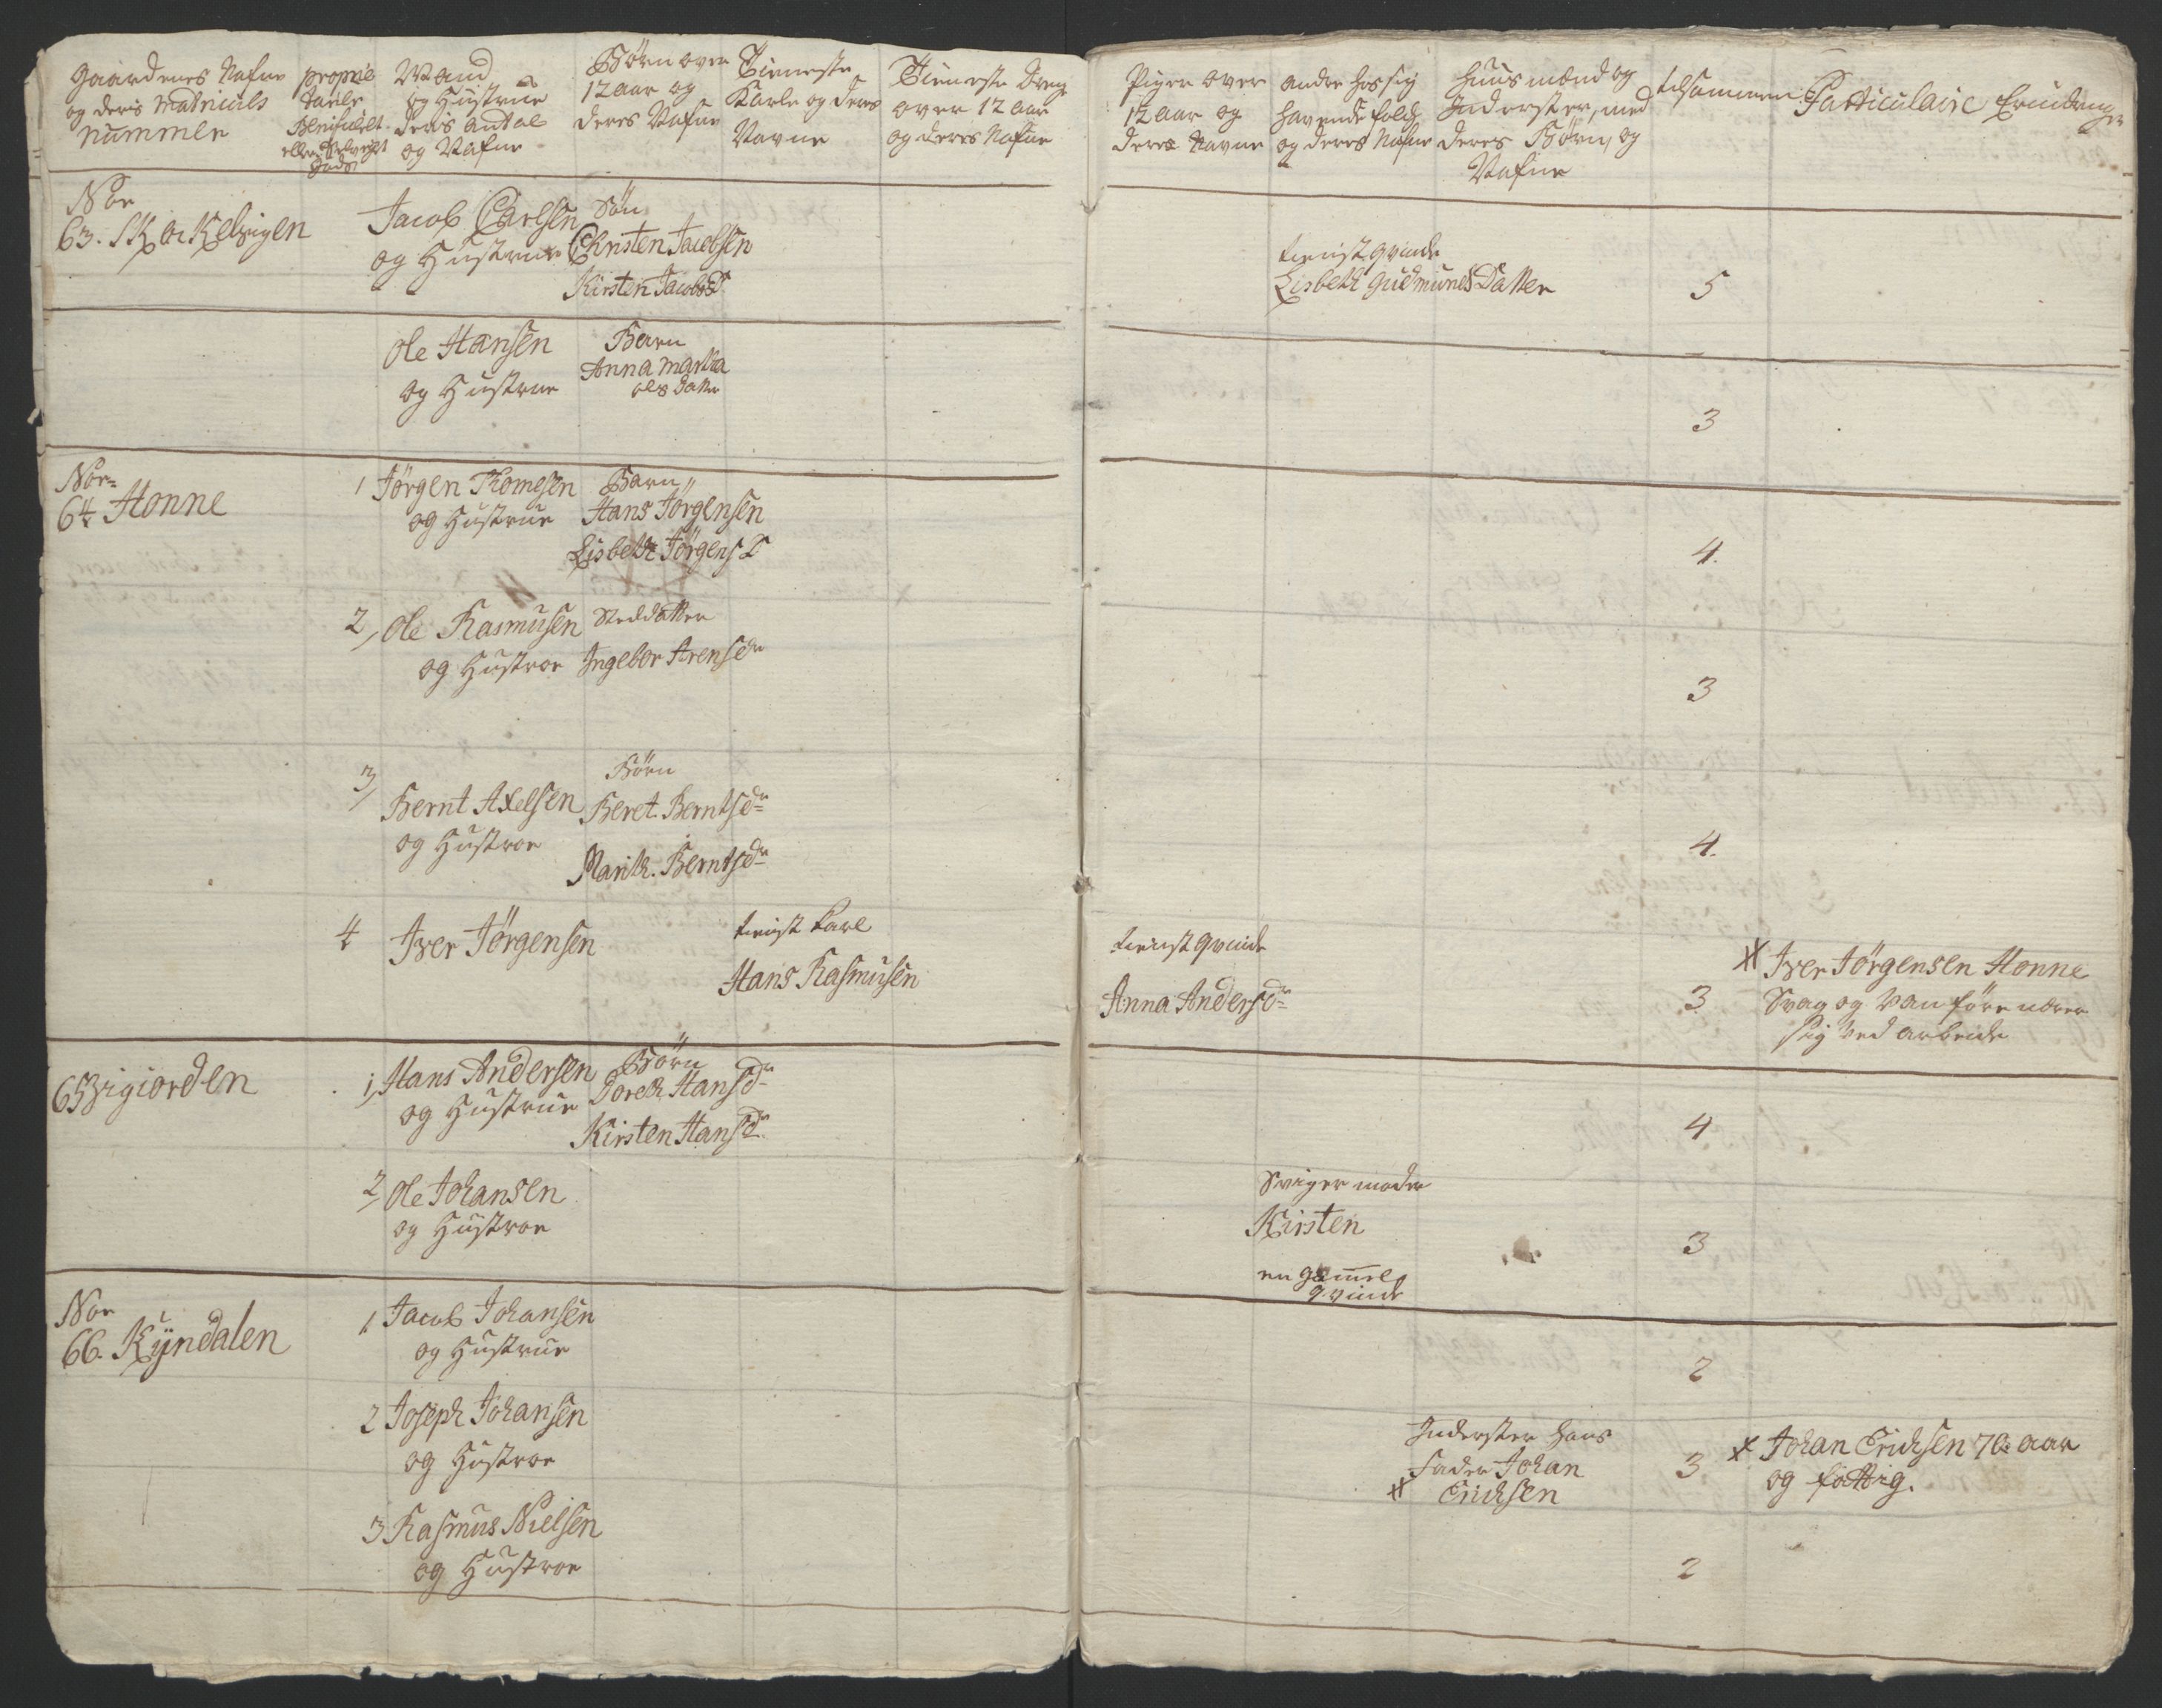 Gaardenes Nafne
og deris Matriculs
Nummer
proprie
tairle
Benificeret
eller Selvejet
Gods
Mand
og Hustrue
deris antal
og Nafne
Børn over
12 aar og
deres Nafne
Tieneste
Karle og deres
Navne
Tieneste dreng
over 12 aar
og deres Nafne
Piger over
12 aar og
deres Navne
andre hos sig
havende folch
og deres Nafne
Huusmænd og
Inderster, med
deres Børn, og
Nafne
tilsammen
Particulaire Erindringer
Nor
63. SKorKelvigen
Jacob Carlsen
og Hustrue
Søn
Christen Jacobsen
Kirsten Jacobs D
tienistqvinde
Lisbeth Gudmunds Datter
5
Ole Hansen
og Hustrue
Barn
Anna Martha
Ols Datter
3
Nor
64 Honne
1 Jörgen Thomesen
og Hustrue
Barn
Hans Jörgensen
Lisbeth Jörgens D
4.
2, Ole Rasmusen
og Hustroe
Steddatter
Ingebor Arens dr
3
3,
Bernt Axelsen
og Hustroe
Börn
Beret. Bernts dr
Marith. Bernts dr
4.
4 Iver Jörgensen
tienist Karl
Hans Rasmusen
tienistqvinde
Anna Anders dr
3
# Iver Jörgensen Honne
Svag og Vanföre nærer
sig ved arbeide
65 Vigiorden
1, Hans Andersen
og Hustrue
Börn
Doreth Hans dr
Kirsten Hans dr
4
2, Ole Johansen
og Hustroe
Sviger moder
Kirsten
en gammel
qvinde
3
Nor
66. Kÿndalen
1, Jacob Johansen
og Hustrue
2
2 Joseph Johansen
og Hustroe
Inderster hans
Fader Johan
# Erichsen
3
# Johan Erichsen 70 aar
og fattig.
3 Rasmus Nielsen
og Hustroe
2